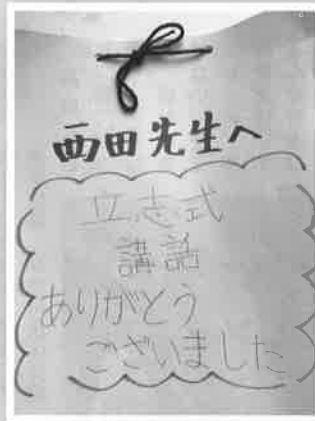 西田先生へ
立志式
講話
ありがとう
ございました